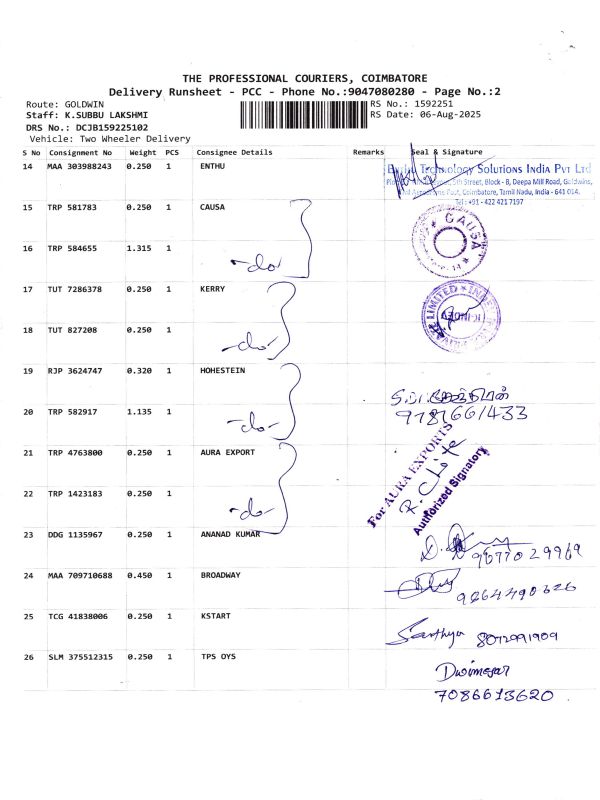 THE PROFESSIONAL COURIERS, COIMBATORE
Delivery Runsheet - PCC - Phone No.:9047080280 - Page No.:2
Route: GOLDWIN RS No.: 1592251
Staff: K.SUBBU LAKSHMI RS Date: 06-Aug-2025
DRS No.: DCJB159225102
Vehicle: Two Wheeler Delivery
S No Consignment No Weight PCS Consignee Details Remarks Seal & Signature
14 MAA 303988243 0.250 1 ENTHU
Technology Solutions India Pvt Ltd
5th Street, Block - B, Deepa Mill Road, Goldwins,
Post, Coimbatore, Tamil Nadu, India - 641 014.
Tel : +91 - 422 421 7197
15 TRP 581783 0.250 1 CAUSA
CAUSA
16 TRP 584655 1.315 1
-do-
17 TUT 7286378 0.250 1 KERRY
LIMITED
18 TUT 827208 0.250 1
-do-
19 RJP 3624747 0.320 1 HOHESTEIN
20 TRP 582917 1.135 1
-do-
21 TRP 4763800 0.250 1 AURA EXPORT
For AURA EXPORTS
Authorized Signatory
22 TRP 1423183 0.250 1
-do-
23 DDG 1135967 0.250 1 ANANAD KUMAR
9677029969
24 MAA 709710688 0.450 1 BROADWAY
25 TCG 41838006 0.250 1 KSTART
Santhya 8072991909
26 SLM 375512315 0.250 1 TPS OYS
7086613620